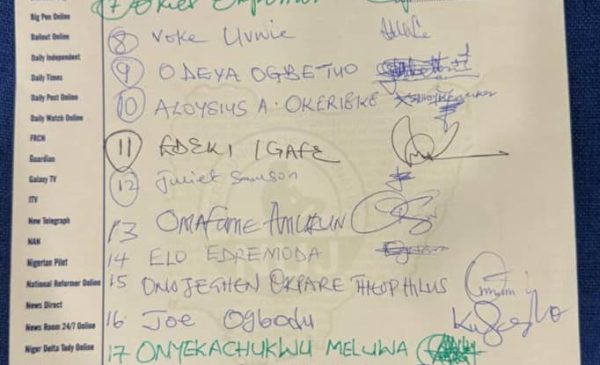 Big Pen Online
Bailout Online
Daily Independent
Daily Times
Daily Post Online
Daily Watch Online
FRCN
Guardian
Galaxy TV
ITV
New Telegraph
NAN
Nigerian Pilot
National Reformer Online
News Direct
News Room 24/7 Online
Niger Delta Tody Online
7
8 Voke Uvwie
9 ODEYA OGBETUO
10 ALOYSIUS A. OKERIBIKE
11 EDEKI IGAFE
12 Juliet Samson
13 OMAFUME AMURUN
14 ELO EDREMODA
15 ONOJEGHEN OKPARE THEOPHILUS
16 Joe Ogbodu
17 ONYEKACHUKWU MELUWA